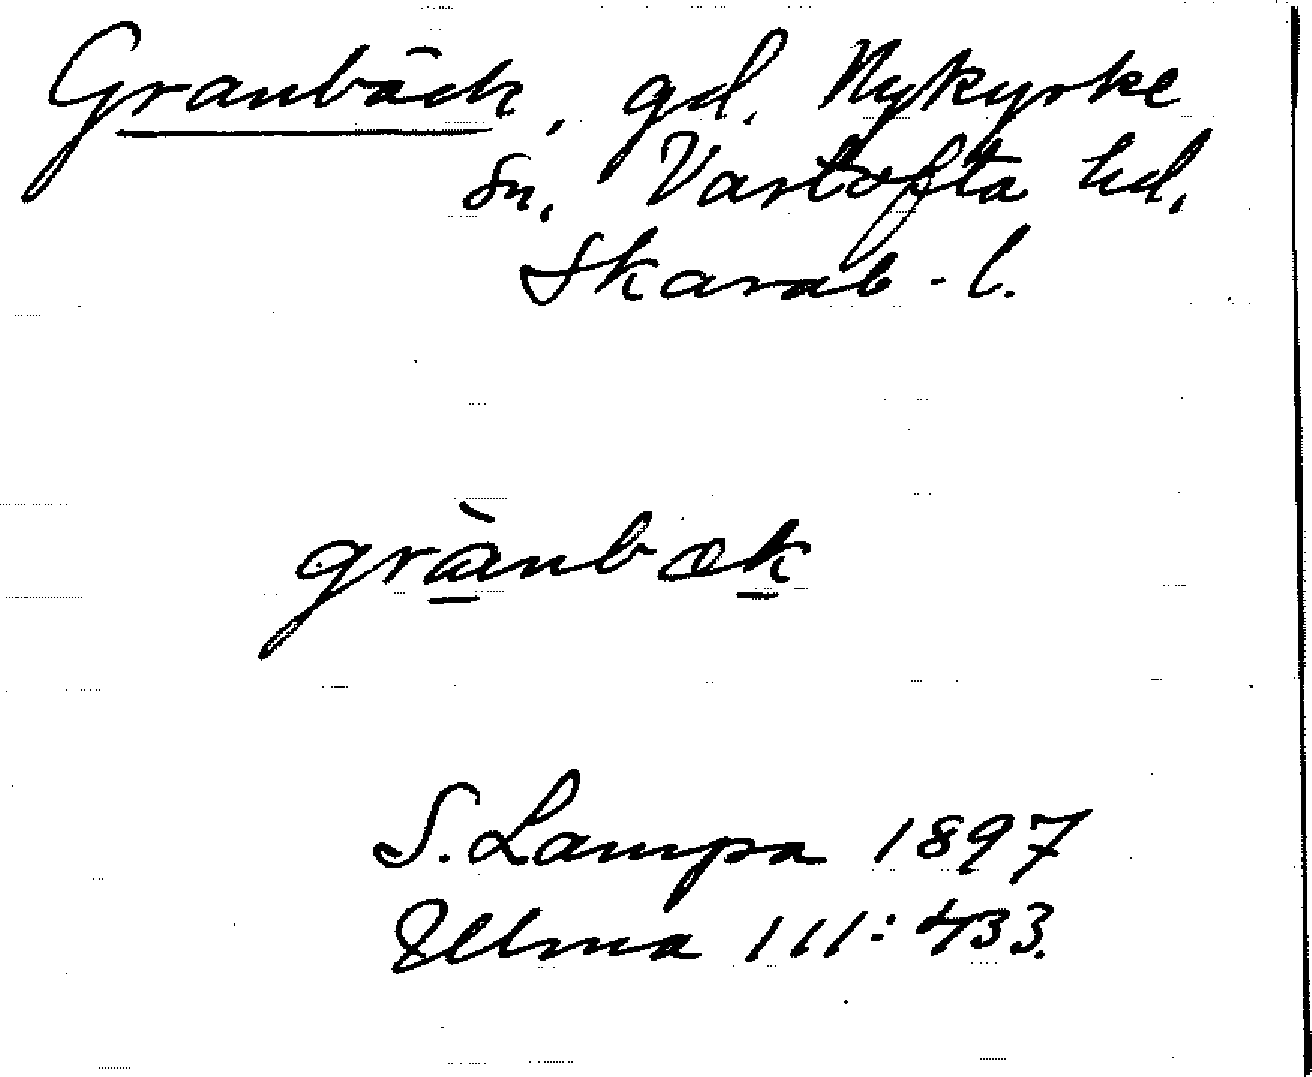 Granbäck, gd. Nykyrke
sn. Vartofta hd.
Skarab-l.
grànbæk
S. Lampa 1897
Ulma 111:433.